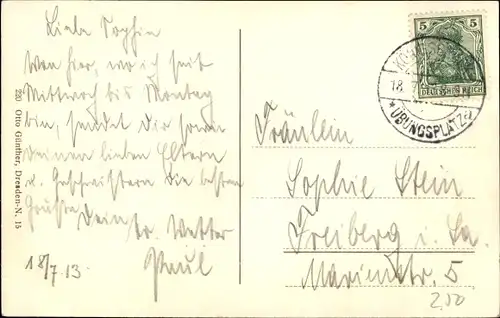 Liebe Sophie
Von hier, wo ich seit
Mittwoch bis Montag
bin, sendet Dir sowie
Deinen lieben Eltern
u. Geschwistern die besten
Grüsse
Dein tr. Vetter
Paul
18/7.13.
220 Otto Günther, Dresden-N. 15
5 5
DEUTSCHES REICH
18. 7
* ÜBUNGSPLATZ *
Fräulein
Sophie Stein
Freiberg i. Sa.
Marienstr. 5
2,50